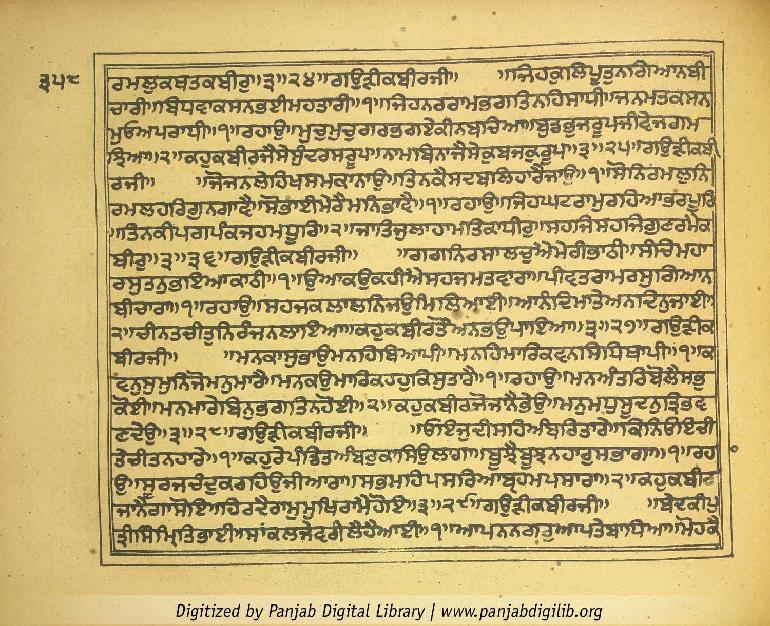 ੩੫੮
ਰਮਲੁਕਬਤਕਬੀਰੁ॥੩॥੨੪॥ਗਉੜੀਕਬੀਰਜੀ॥ ॥ਜਿਹਕੁਲਿਪੂਤੁਨਗਿਆਨਬੀ
ਚਾਰੀ॥ਬਿਧਵਾਕਸਨਭਈਮਹਤਾਰੀ॥੧॥ਜਿਹਨਰਰਾਮਭਗਤਿਨਹਿਸਾਧੀ॥ਜਨਮਤਕਸਨ
ਮੁਓਅਪਰਾਧੀ॥੧॥ਰਹਾਉ॥ਮੁਚੁਮੁਚੁਗਰਭਗਏਕੀਨਬਚਿਆ॥ਬੁਡਭੁਜਰੂਪਜੀਵੇਜਗਮ
ਝਿਆ॥੨॥ਕਹੁਕਬੀਰਜੈਸੇਸੁੰਦਰਸਰੂਪ॥ਨਾਮਬਿਨਾਜੈਸੇਕੁਬਜਕੁਰੂਪ॥੩॥੨੫॥ਗਉੜੀਕਬੀ
ਰਜੀ॥ ॥ਜੋਜਨਲੇਹਿਖਸਮਕਾਨਾਉ॥ਤਿਨਕੈਸਦਬਲਿਹਾਰੈਜਾਉ॥੧॥ਸੋਨਿਰਮਲੁਨਿ
ਰਮਲਹਰਿਗੁਨਗਾਵੈ॥ਸੋਭਾਈਮੇਰੈਮਨਿਭਾਵੈ॥੧॥ਰਹਾਉ॥ਜਿਹਘਟਰਾਮੁਰਹਿਆਭਰਪੂਰਿ
॥ਤਿਨਕੀਪਗਪੰਕਜਹਮਧੂਰਿ॥੨॥ਜਾਤਿਜੁਲਾਹਾਮਤਿਕਾਧੀਰੁ॥ਸਹਜਿਸਹਜਿਗੁਣਰਮੈਕ
ਬੀਰੁ॥੩॥੨੬॥ਗਉੜੀਕਬੀਰਜੀ॥ ॥ਗਗਨਿਰਸਾਲਚੁਐਮੇਰੀਭਾਠੀ॥ਸੰਚਿਮਹਾ
ਰਸੁਤਨੁਭਇਆਕਾਠੀ॥੧॥ਉਆਕਉਕਹੀਐਸਹਜਮਤਵਾਰਾ॥ਪੀਵਤਰਾਮਰਸੁਗਿਆਨ
ਬੀਚਾਰਾ॥੧॥ਰਹਾਉ॥ਸਹਜਕਲਾਲਨਿਜਉਮਿਲਿਆਈ॥ਆਨੰਦਿਮਾਤੇਅਨਦਿਨੁਜਾਈ॥
੨॥ਚੀਨਤਚੀਤੁਨਿਰੰਜਨਲਾਇਆ॥ਕਹੁਕਬੀਰਤੌਅਨਭਉਪਾਇਆ॥੩॥੨੭॥ਗਉੜੀਕ
ਬੀਰਜੀ॥ ॥ਮਨਕਾਸੁਭਾਉਮਨਹਿਬਿਆਪੀ॥ਮਨਹਿਮਾਰਿਕਵਨਸਿਧਿਥਾਪੀ॥੧॥ਕ
ਵਨੁਸੁਮੁਨਿਜੋਮਨੁਮਾਰੈ॥ਮਨਕਉਮਾਰਿਕਹਹੁਕਿਸੁਤਾਰੈ॥੧॥ਰਹਾਉ॥ਮਨਅੰਤਰਿਬੋਲੈਸਭੁ
ਕੋਈ॥ਮਨਮਾਰੇਬਿਨੁਭਗਤਿਨਹੋਈ॥੨॥ਕਹੁਕਬੀਰਜੋਜਾਨੈਭੇਉ॥ਮਨੁਮਧੁਸੂਦਨੁਤ੍ਰਿਭਵ
ਣਦੇਉ॥੩॥੨੮॥ਗਉੜੀਕਬੀਰਜੀ॥ ॥ਓਇਜੁਦੀਸਹਿਅੰਬਰਿਤਾਰੇ॥ਕਿਨਿਓਇਚੀ
ਤੇਚੀਤਨਹਾਰੇ॥੧॥ਕਹੁਰੇਪੰਡਿਤਅੰਬਰੁਕਾਸਿਉਲਾਗਾ॥ਬੂਝੈਬੂਝਨਹਾਰੁਸਭਾਗਾ॥੧॥ਰਹਾ
ਉ॥ਸੂਰਜਚੰਦੁਕਰਹਿਉਜੀਆਰਾ॥ਸਭਮਹਿਪਸਰਿਆਬ੍ਰਹਮਪਸਾਰਾ॥੨॥ਕਹੁਕਬੀਰ
ਜਾਨੈਗਾਸੋਇ॥ਹਿਰਦੈਰਾਮੁਮੁਖਿਰਾਮੈਹੋਇ॥੩॥੨੯॥ਗਉੜੀਕਬੀਰਜੀ॥ ॥ਬੇਦਕੀਪੁ
ਤ੍ਰੀਸਿੰਮ੍ਰਿਤਿਭਾਈ॥ਸਾਂਕਲਜੇਵਰੀਲੈਹੈਆਈ॥੧॥ਆਪਨਨਗਰੁਆਪਤੇਬਾਧਿਆ॥ਮੋਹਕੈ
Digitized by Panjab Digital Library | www.panjabdigilib.org